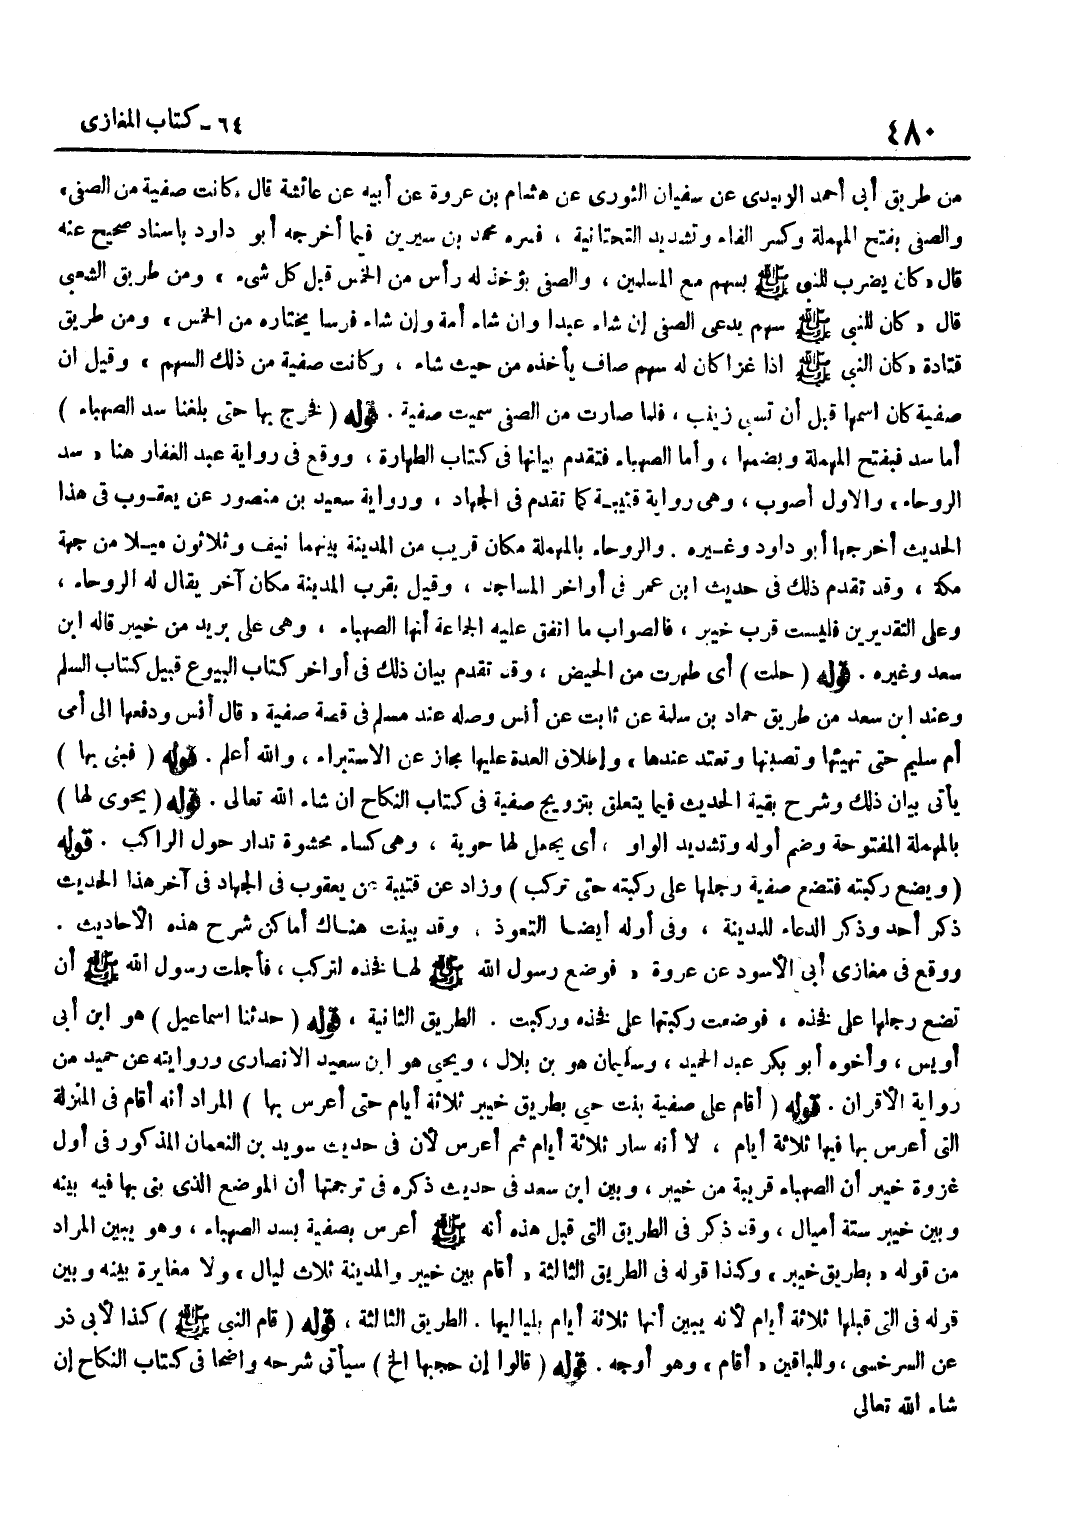 ٤٨٠
٦٤ - كتاب المغازى
من طريق أبى أحمد الزبيدى عن سفيان الثورى عن هشام بن عروة عن أبيه عن عائشة قال « كانت صفية من الصفى»
والصفى بفتح المهملة وكسر الفاء وتشديد التحتانية ، فسره محمد بن سيرين فيما أخرجه أبو داود باسناد صحيح عنه
قال « كان يضرب للنبى ﷺ بسهم مع المسلمين ، والصفى يؤخذ له رأس من الخمس قبل كل شىء » ومن طريق الشعبى
قال « كان للنبى ﷺ سهم يدعى الصفى إن شاء عبدا وان شاء أمة وإن شاء فرسا يختاره من الخمس » ومن طريق
قتادة « كان النبى ﷺ اذا غزا كان له سهم صاف يأخذه من حيث شاء ، وكانت صفية من ذلك السهم » وقيل ان
صفية كان اسمها قبل أن تسبى زينب ، فلما صارت من الصفى سميت صفية . قوله ( فخرج بها حتى بلغنا سد الصهباء )
أما سد فبفتح المهملة وبضمها ، وأما الصهباء فتقدم بيانها فى كتاب الطهارة ، ووقع فى رواية عبد الغفار هنا « سد
الروحاء » والاول أصوب ، وهى رواية قتيبة كما تقدم فى الجهاد ، ورواية سعيد بن منصور عن يعقوب فى هذا
الحديث أخرجها أبو داود وغيره . والروحاء بالمهملة مكان قريب من المدينة بينهما نيف وثلاثون ميلا من جهة
مكة ، وقد تقدم ذلك فى حديث ابن عمر فى أواخر المساجد ، وقيل بقرب المدينة مكان آخر يقال له الروحاء ،
وعلى التقديرين فليست قرب خيبر ، فالصواب ما اتفق عليه الجماعة أنها الصهباء ، وهى على بريد من خيبر قاله ابن
سعد وغيره . قوله ( حلت ) أى طهرت من الحيض ، وقد تقدم بيان ذلك فى أواخر كتاب البيوع قبيل كتاب السلم
وعند ابن سعد من طريق حماد بن سلمة عن ثابت عن أنس وصله عند مسلم فى قصة صفية « قال أنس ودفعها الى أمى
أم سليم حتى تهيئها وتصبنها وتعتد عندها » وإطلاق العدة عليها مجاز عن الاستبراء ، والله أعلم . قوله ( فبنى بها )
يأتى بيان ذلك وشرح بقية الحديث فيما يتعلق بتزويج صفية فى كتاب النكاح ان شاء الله تعالى . قوله ( يحوى لها )
بالمهملة المفتوحة وضم أوله وتشديد الواو ، أى يجعل لها حوية ، وهى كساء محشوة تدار حول الراكب . قوله
( ويضع ركبته فتضع صفية رجلها على ركبته حتى تركب ) وزاد عن قتيبة عن يعقوب فى الجهاد فى آخر هذا الحديث
ذكر أحد وذكر الدعاء للمدينة ، وفى أوله أيضا التعوذ ، وقد بينت هناك أماكن شرح هذه الأحاديث .
ووقع فى مغازى أبى الأسود عن عروة « فوضع رسول الله ﷺ لها فخذه لتركب ، فأجلت رسول الله ﷺ أن
تضع رجلها على فخذه ، فوضعت ركبتها على فخذه وركبت . الطريق الثانية ، قوله ( حدثنا اسماعيل ) هو ابن أبى
أويس ، وأخوه أبو بكر عبد الحميد ، وسليمان هو بن بلال ، ويحيى هو ابن سعيد الانصارى وروايته عن حميد من
رواية الأقران . قوله ( أقام على صفية بنت حيى بطريق خيبر ثلاثة أيام حتى أعرس بها ) المراد أنه أقام فى المنزلة
التى أعرس بها فيها ثلاثة أيام ، لا أنه سار ثلاثة أيام ثم أعرس لأن فى حديث سويد بن النعمان المذكور فى أول
غزوة خيبر أن الصهباء قريبة من خيبر ، وبين ابن سعد فى حديث ذكره فى ترجمتها أن الموضع الذى بنى بها فيه بينه
وبين خيبر ستة أميال ، وقد ذكر فى الطريق التى قبل هذه أنه ﷺ أعرس بصفية بسد الصهباء ، وهو يبين المراد
من قوله « بطريق خيبر » وكذا قوله فى الطريق الثالثة « أقام بين خيبر والمدينة ثلاث ليال » ولا مغايرة بينه وبين
قوله فى التى قبلها ثلاثة أيام لأنه يبين أنها ثلاثة أيام بلياليها . الطريق الثالثة ، قوله ( قام النبى ﷺ ) كذا لأبى ذر
عن السرخسى ، وللباقين « أقام » وهو أوجه . قوله ( قالوا إن حجبها الخ ) سيأتى شرحه واضحا فى كتاب النكاح إن
شاء الله تعالى